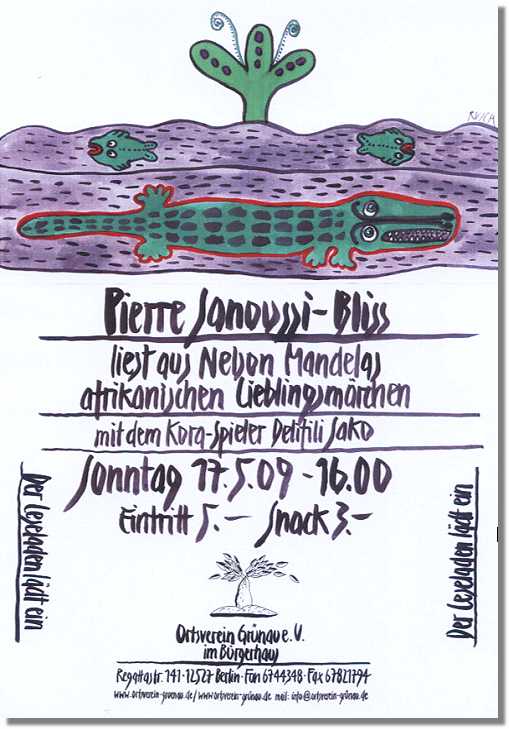 RUSCA
Pierre Sanoussi-Bliss
liest aus Nelson Mandelas
afrikanischen Lieblingsmärchen
mit dem Kora-Spieler Delifili Sako
Sonntag 17.5.09 - 16.00
Eintritt 5.— Snack 3.-
Der Leseladen lädt ein
Der Leseladen lädt ein
Ortsverein Grünau e.V.
im Bürgerhaus
Regattastr. 141 · 12527 Berlin · Fon 6744348 · Fax 67821794
www.ortsverein-gruenau.de / www.ortsverein-grünau.de mail: info@ortsverein-grünau.de